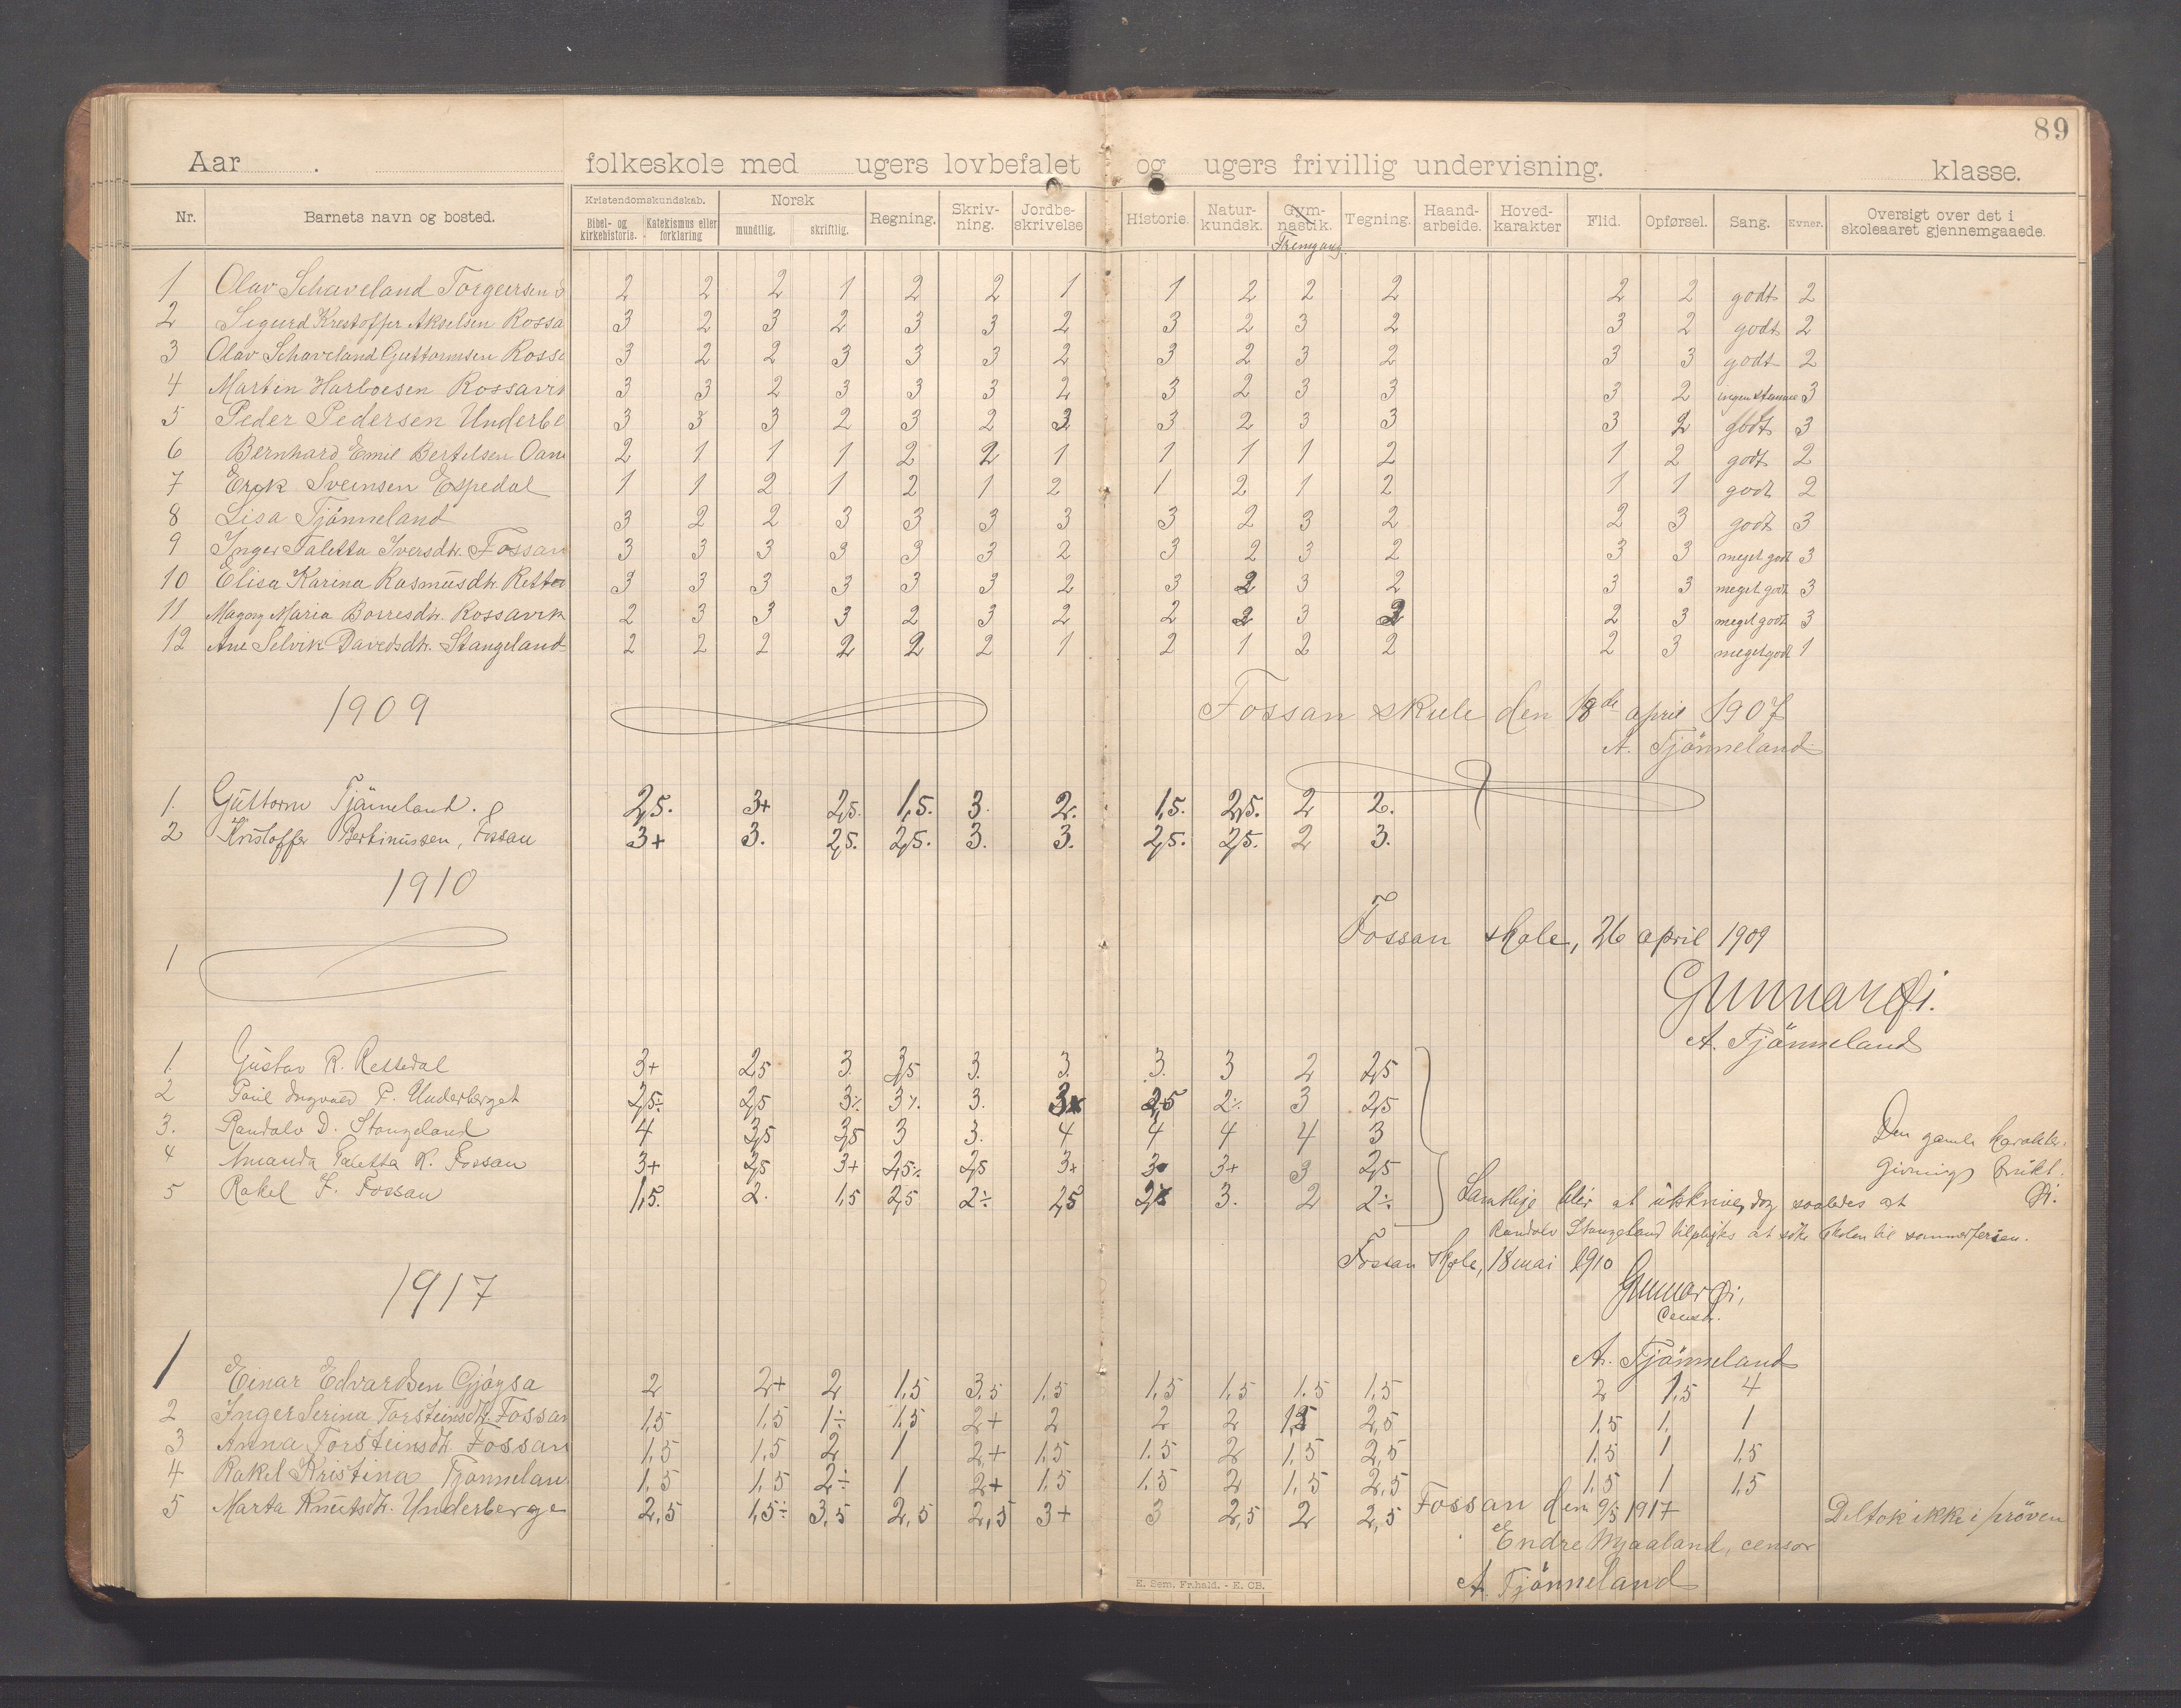 89
Aar . folkeskole med ugers lovbefalet og ugers frivillig undervisning. klasse.
Nr. Barnets navn og bosted. Kristendomskundskab. Bibel- og kirkehistorie. Katekismus eller forklaring Norsk mundtlig. skriftlig. Regning. Skriv-ning. Jordbe-skrivelse Historie. Natur-kundsk. Gym-nastik. Fremgang. Tegning. Haand-arbeide. Hoved-karakter Flid. Opførsel. Sang. Evner. Oversigt over det i skoleaaret gjennemgaaede.
1 Olav Schaveland Torgeirsen 2 2 2 1 2 2 1 1 2 2 2 2 2 godt 2
2 Sigurd Krestoffer Akselsen Rossa 3 2 3 2 3 3 2 3 2 3 2 3 2 godt 2
3 Olav Schaveland Guttormsen Rossa 3 2 2 3 3 3 2 3 2 3 2 3 3 godt 2
4 Marten Harboesen Rossavik 3 3 2 3 3 3 2 3 2 3 3 3 2 ingen stemme 3
5 Peder Pedersen Underbe 3 3 3 2 3 2 3 3 2 3 3 3 2 godt 3
6 Bernhard Emil Bertelsen Oan 2 1 1 1 2 2 1 1 1 1 2 1 2 godt 2
7 Erik Sveinsen Espedal 1 1 2 1 2 1 2 1 2 1 2 1 1 godt 2
8 Lisa Tjönneland 3 2 2 3 3 3 3 3 2 3 2 2 3 godt 3
9 Inger Taletta Iversdtr. Fossan 3 3 3 3 3 3 2 3 2 3 2 3 3 meget godt 3
10 Elisa Karina Rasmusdtr. Rette 3 3 3 3 3 3 2 3 2 3 2 3 3 meget godt 3
11 Magny Maria Borresdtr. Rossavik 2 3 3 3 2 3 2 2 2 3 2 2 3 meget godt 3
12 Ane Selvik Davidsdtr. Stangeland 2 2 2 2 2 2 1 2 1 2 2 2 3 meget godt 1
1909
Fossan skule den 18de april 1907
A. Tjönneland
1. Guttorm Tjönneland. 2,5. 3+ 2,5. 1,5. 3. 2. 1,5. 2,5. 2 2.
2 Kristoffer Bertinussen, Fossan 3+ 3. 2,5. 2,5. 3. 3. 2,5. 2,5. 2 3.
1910
Fossan skole, 26 april 1909
1
Gunnar Øi.
A. Tjönneland
1. Gustav R. Rettedal 3+ 2,5 3. 3,5 3. 3. 3. 3 2 2,5
2 Paul Ingvald P. Underberget 2,5÷ 2,5 3÷ 3÷ 3. 3 2,5 2÷ 3 2,5
3. Randolv D. Stangeland 4 3,5 3,5 3 3. 4 4 4 4 3
4 Amanda Taletta K. Fossan 3+ 2,5 3+ 2,5÷ 2,5 3+ 3 3+ 3 2,5
5 Rakel I. Fossan 1,5. 2. 1,5 2,5 2÷ 2,5 2,5 3. 2 2÷
Den gamle karakter-
givning brukt.
Øi.
Samtlige blir at utskrive, dog saaledes at
Randolv Stangeland tilpligtes at söke skolen til sommerferien.
Fossan skole, 18 mai 1910
Gunnar Øi,
censor.
1917
A. Tjönneland
1 Einar Edvardsen Gjöysa 2 2+ 2 1,5 3,5 1,5 1,5 1,5 1,5 1,5 2 1,5 4
2 Inger Serina Torsteinsdtr. Fossan 1,5 1,5 1÷ 1,5 2+ 2 2 2 1,5 2,5 1,5 1, 1
3 Anna Torsteinsdtr. Fossan 1,5 1,5 2 1 2+ 1,5 1,5 2 1,5 2,5 1,5 1 1,5
4 Rakel Kristina Tjönnelan 1,5 1,5 2÷ 1 2+ 1,5 1,5 2 1,5 2,5 1,5 1 1,5
5 Marta Knutsdtr. Underberge 2,5 1,5÷ 3,5 2,5 2,5 3+ 3 2,5 2 2,5 Deltok ikke i pröven
Fossan den 9/5 1917
Endre Mjaaland, censor
A. Tjönneland
E. Sem. Fr.hald. - E. CB.